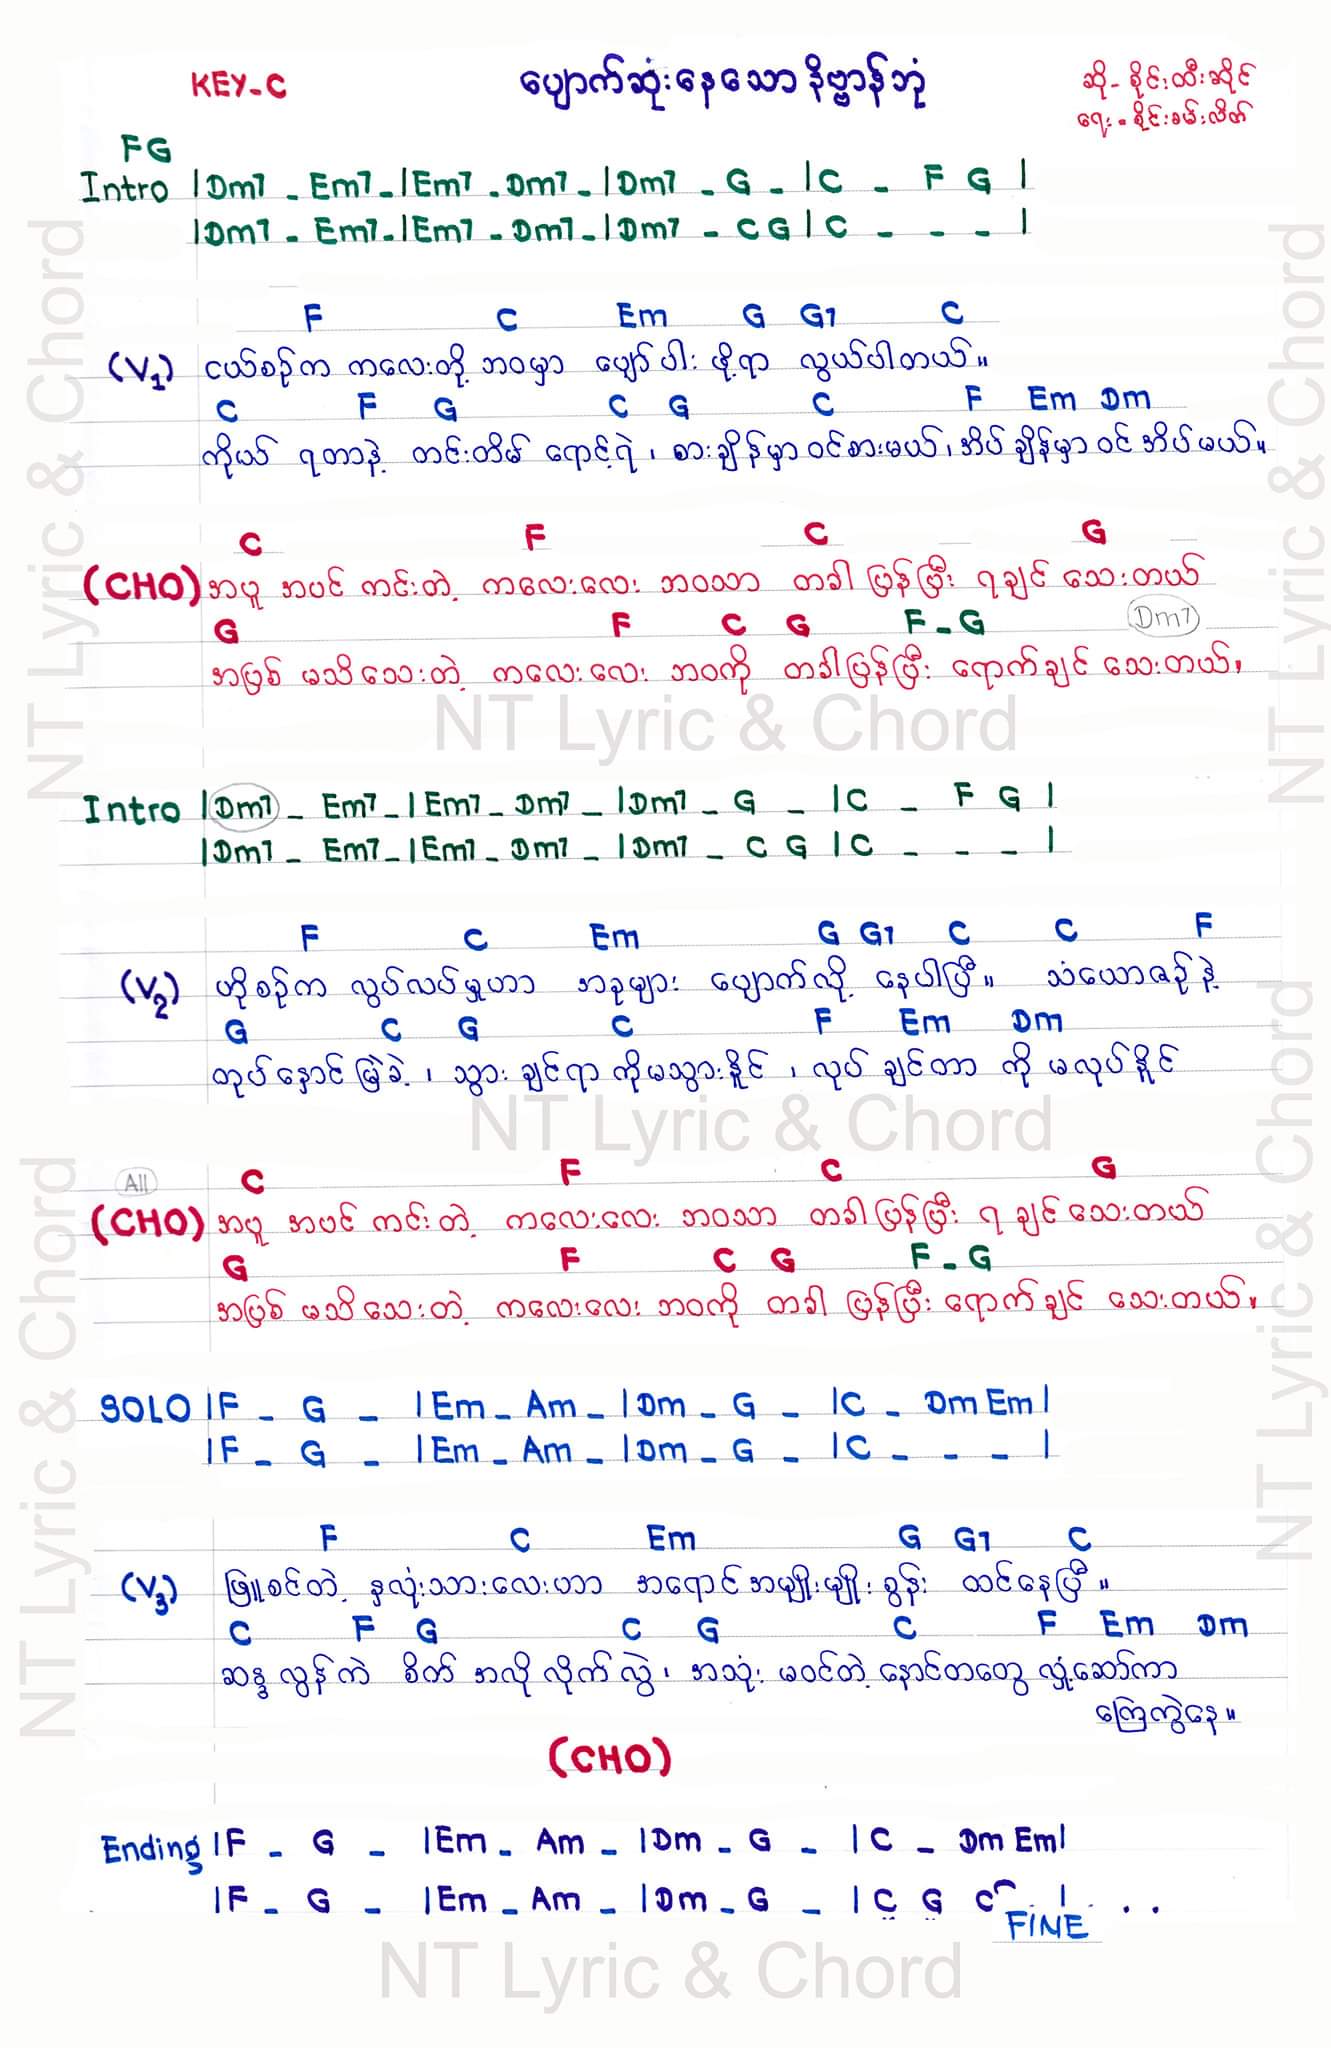 KEY-C ပျောက်ဆုံးနေသော နိဗ္ဗာန်ဘုံ ဆို - စိုင်းထီးဆိုင်
ရေး - စိုင်းခမ်းလိတ်
FG
Intro |Dm7 - Em7 - |Em7 - Dm7 - |Dm7 - G - |C - F G |
|Dm7 - Em7 - |Em7 - Dm7 - |Dm7 - C G |C - - - |
F C Em G G7 C
(V1) ငယ်စဉ်က ကလေးတို့ ဘဝမှာ ပျော်ပါး ဖို့ရာ လွယ်ပါတယ်။
C F G C G C F Em Dm
ကိုယ် ရတာနဲ့ တင်းတိမ် ရောင့်ရဲ၊ စားချိန်မှာ ဝင်စားမယ်၊ အိပ်ချိန်မှာ ဝင်အိပ်မယ်။
C F C G
(CHO) အပူ အပင် ကင်းတဲ့ ကလေးလေး ဘဝသာ တခါ ပြန်ပြီး ရချင် သေးတယ်
G F C G F - G Dm7
အပြစ် မသိသေးတဲ့ ကလေးလေး ဘဝကို တခါပြန်ပြီး ရောက်ချင် သေးတယ်၊
NT Lyric & Chord
Intro |Dm7 - Em7 - |Em7 - Dm7 - |Dm7 - G - |C - F G |
|Dm7 - Em7 - |Em7 - Dm7 - |Dm7 - C G |C - - - |
F C Em G G7 C C F
(V2) ဟိုစဉ်က လွပ်လပ်မှုဟာ အခုများ ပျောက်လို့ နေပါပြီ။ သံယောဇဉ်နဲ့
G C G C F Em Dm
တုပ်နှောင် မြဲခဲ့၊ သွားချင်ရာ ကိုမသွားနိူင်၊ လုပ် ချင်တာ ကို မလုပ်နိူင်
NT Lyric & Chord
All C F C G
(CHO) အပူ အပင် ကင်းတဲ့ ကလေးလေး ဘဝသာ တခါ ပြန်ပြီး ရချင်သေးတယ်
G F C G F - G
အပြစ် မသိသေးတဲ့ ကလေးလေး ဘဝကို တခါ ပြန်ပြီး ရောက်ချင် သေးတယ်၊
SOLO |F - G - |Em - Am - |Dm - G - |C - Dm Em|
|F - G - |Em - Am - |Dm - G - |C - - - |
F C Em G G7 C
(V3) ဖြူစင်တဲ့ နှလုံးသားလေးဟာ အရောင်အမျိုးမျိုး စွန်း ထင်နေပြီ။
C F G C G C F Em Dm
ဆန္ဒလွန်ကဲ စိတ် အလိုလိုက်လွဲ၊ အသုံး မဝင်တဲ့ နှောင်တတွေ လှုံ့ဆော်ကာ
ကြေကွဲနေ။
(CHO)
Ending |F - G - |Em - Am - |Dm - G - |C - Dm Em|
|F - G - |Em - Am - |Dm - G - |C G C . | . .
FINE
NT Lyric & Chord
NT Lyric & Chord
NT Lyric & Chord
NT Lyric & Chord
NT Lyric & Chord